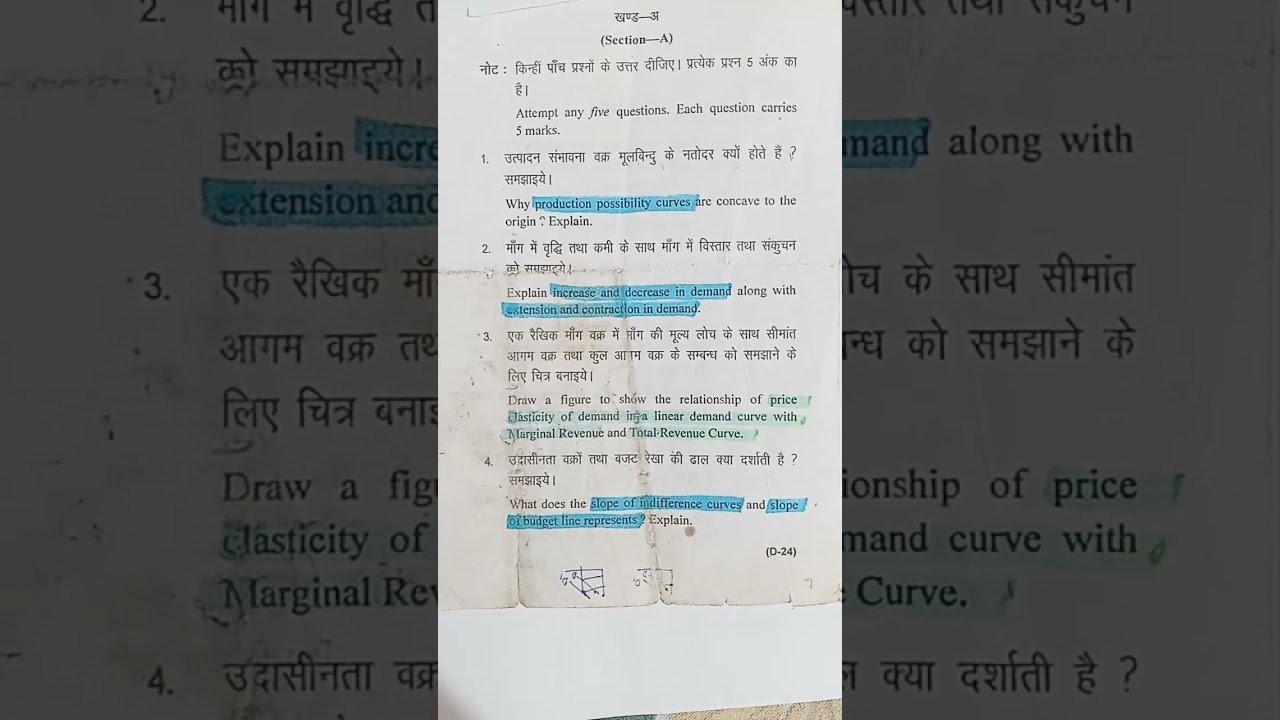 खण्ड—अ
(Section—A)
नोट : किन्हीं पाँच प्रश्नों के उत्तर दीजिए। प्रत्येक प्रश्न 5 अंक का
है।
Attempt any five questions. Each question carries
5 marks.
1. उत्पादन संभावना वक्र मूलबिन्दु के नतोदर क्यों होते हैं ?
समझाइये।
Why production possibility curves are concave to the
origin ? Explain.
2. माँग में वृद्धि तथा कमी के साथ माँग में विस्तार तथा संकुचन
को समझाइये।
Explain increase and decrease in demand along with
extension and contraction in demand.
3. एक रैखिक माँग वक्र में माँग की मूल्य लोच के साथ सीमांत
आगम वक्र तथा कुल आगम वक्र के सम्बन्ध को समझाने के
लिए चित्र बनाइये।
Draw a figure to show the relationship of price
elasticity of demand in a linear demand curve with
Marginal Revenue and Total Revenue Curve.
4. उदासीनता वक्रों तथा बजट रेखा की ढाल क्या दर्शाती है ?
समझाइये।
What does the slope of indifference curves and slope
of budget line represents ? Explain.
(D-24)